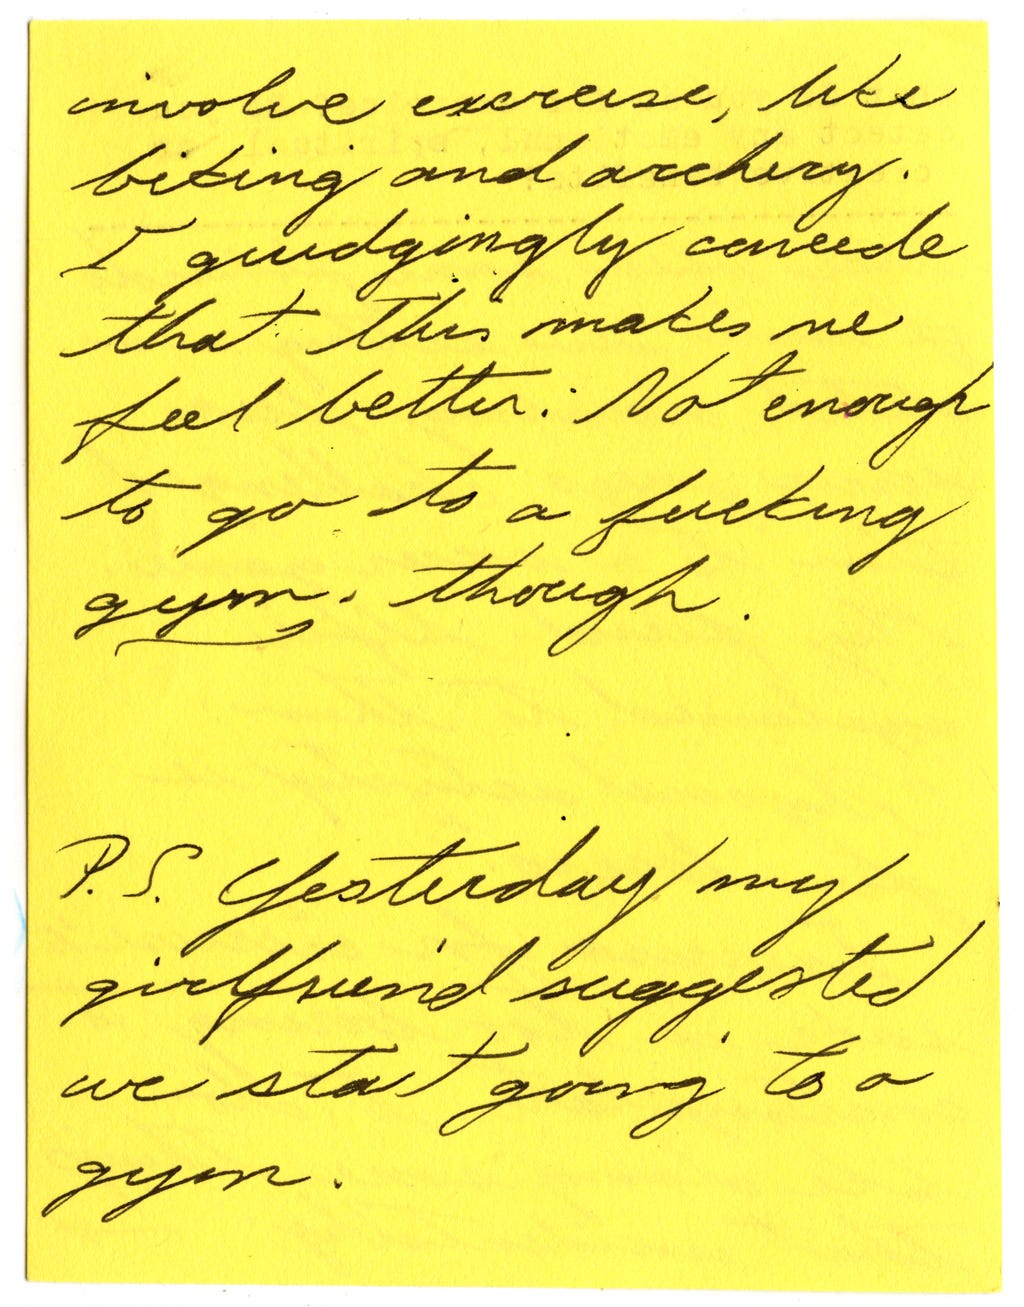 involve exercise, like
biking and archery.
I grudgingly concede
that this makes me
feel better. Not enough
to go to a fucking
gym, though.
P.S. Yesterday my
girlfriend suggested
we start going to a
gym.